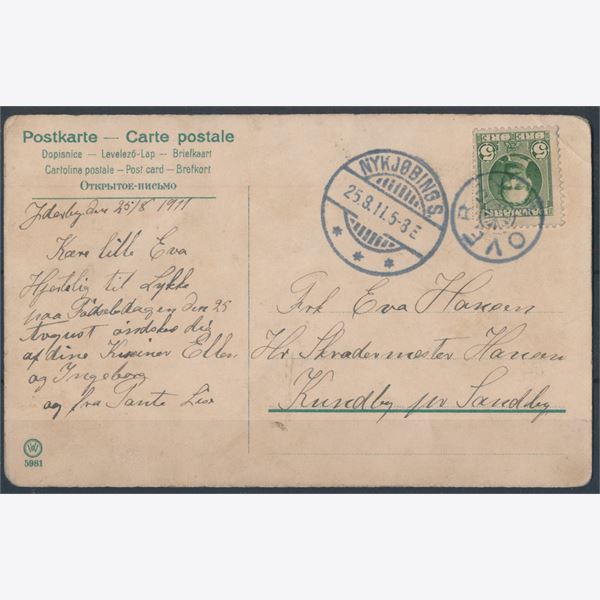 Postkarte — Carte postale
Dopisnice — Levelező-Lap — Briefkaart
Cartolina postale — Post card — Brefkort
Открытое-письмо
den 25/8 1911
Kære lille Eva
Hjertelig til Lykke
paa Födselsdagen den 25
August önskes dig
af dine Kusiner Ellen
og Ingeborg
og fra Tante
5981
NYKJØBING S
25.8.11.5-8E
OVER
5 ØRE 5 ØRE
DANMARK
Frk Eva Hansen
Hr. Skrædermester Hansen
Kundby pr Sandby